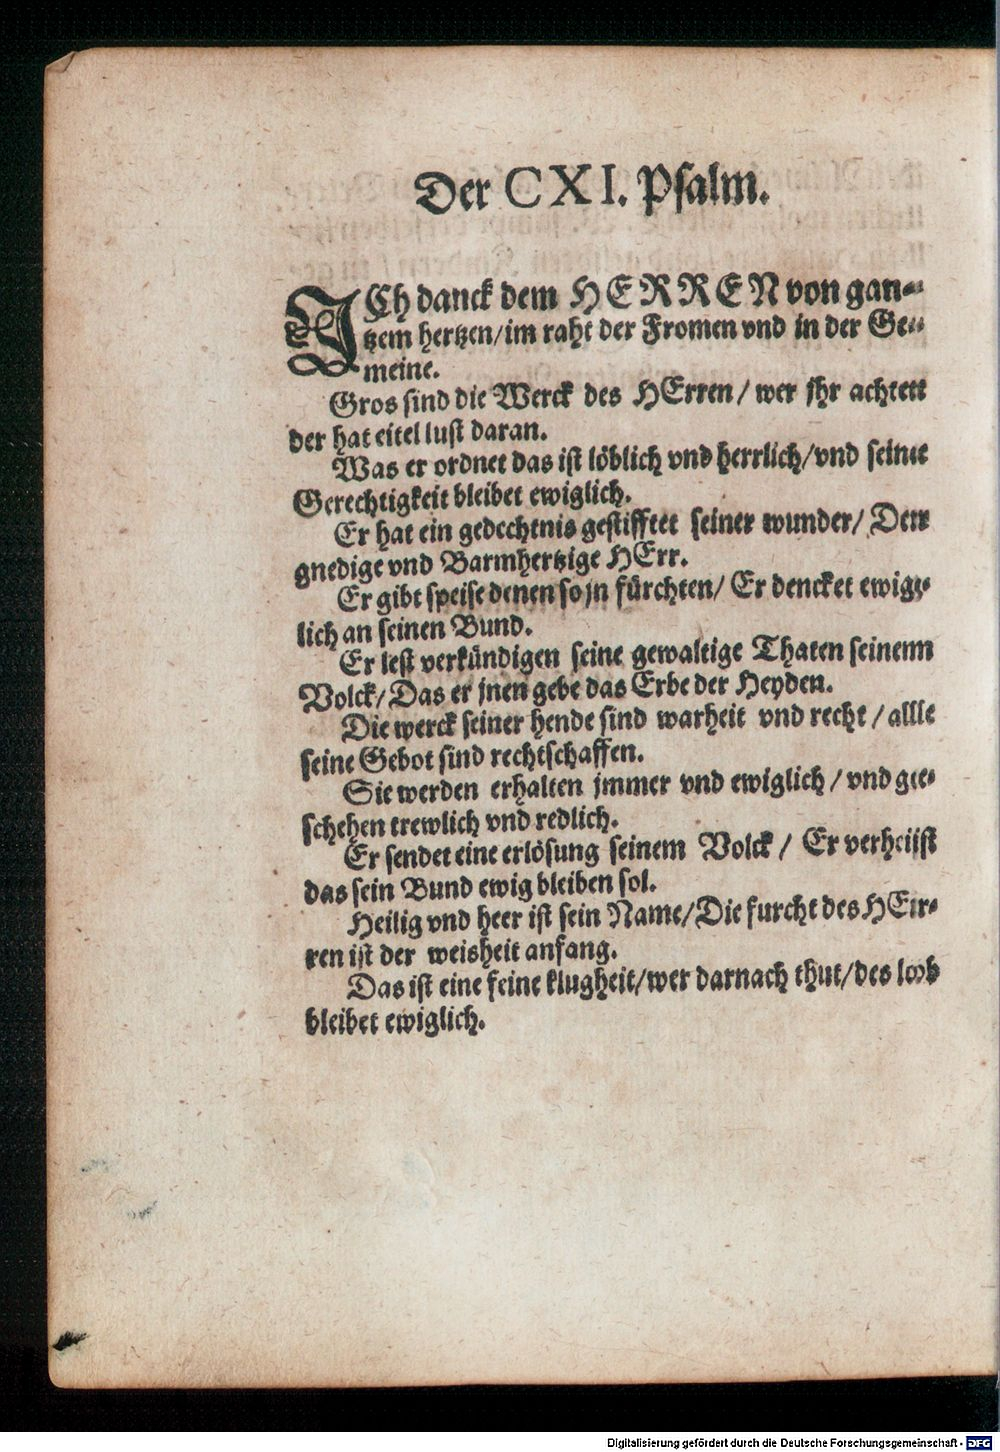 Der CXI. Psalm.
ICh danck dem HERREN von gan⸗
tzem hertzen/im raht der Fromen vnd in der Ge⸗
meine.
Gros sind die Werck des HErren/ wer jhr achtett
der hat eitel lust daran.
Was er ordnet das ist löblich vnd herrlich/vnd seine
Gerechtigkeit bleibet ewiglich.
Er hat ein gedechtnis gestifftet seiner wunder/ Der
gnedige vnd Barmhertzige HErr.
Er gibt speise denen so jn fürchten/ Er dencket ewig⸗
lich an seinen Bund.
Er lest verkündigen seine gewaltige Thaten seinem
Volck/ Das er jnen gebe das Erbe der Heyden.
Die werck seiner hende sind warheit vnd recht / alle
seine Gebot sind rechtschaffen.
Sie werden erhalten jmmer vnd ewiglich / vnd ge⸗
schehen trewlich vnd redlich.
Er sendet eine erlösung seinem Volck / Er verheisst
das sein Bund ewig bleiben sol.
Heilig vnd heer ist sein Name/Die furcht des HEr⸗
ren ist der weisheit anfang.
Das ist eine feine klugheit/wer darnach thut/des lob
bleibet ewiglich.
Digitalisierung gefördert durch die Deutsche Forschungsgemeinschaft - DFG